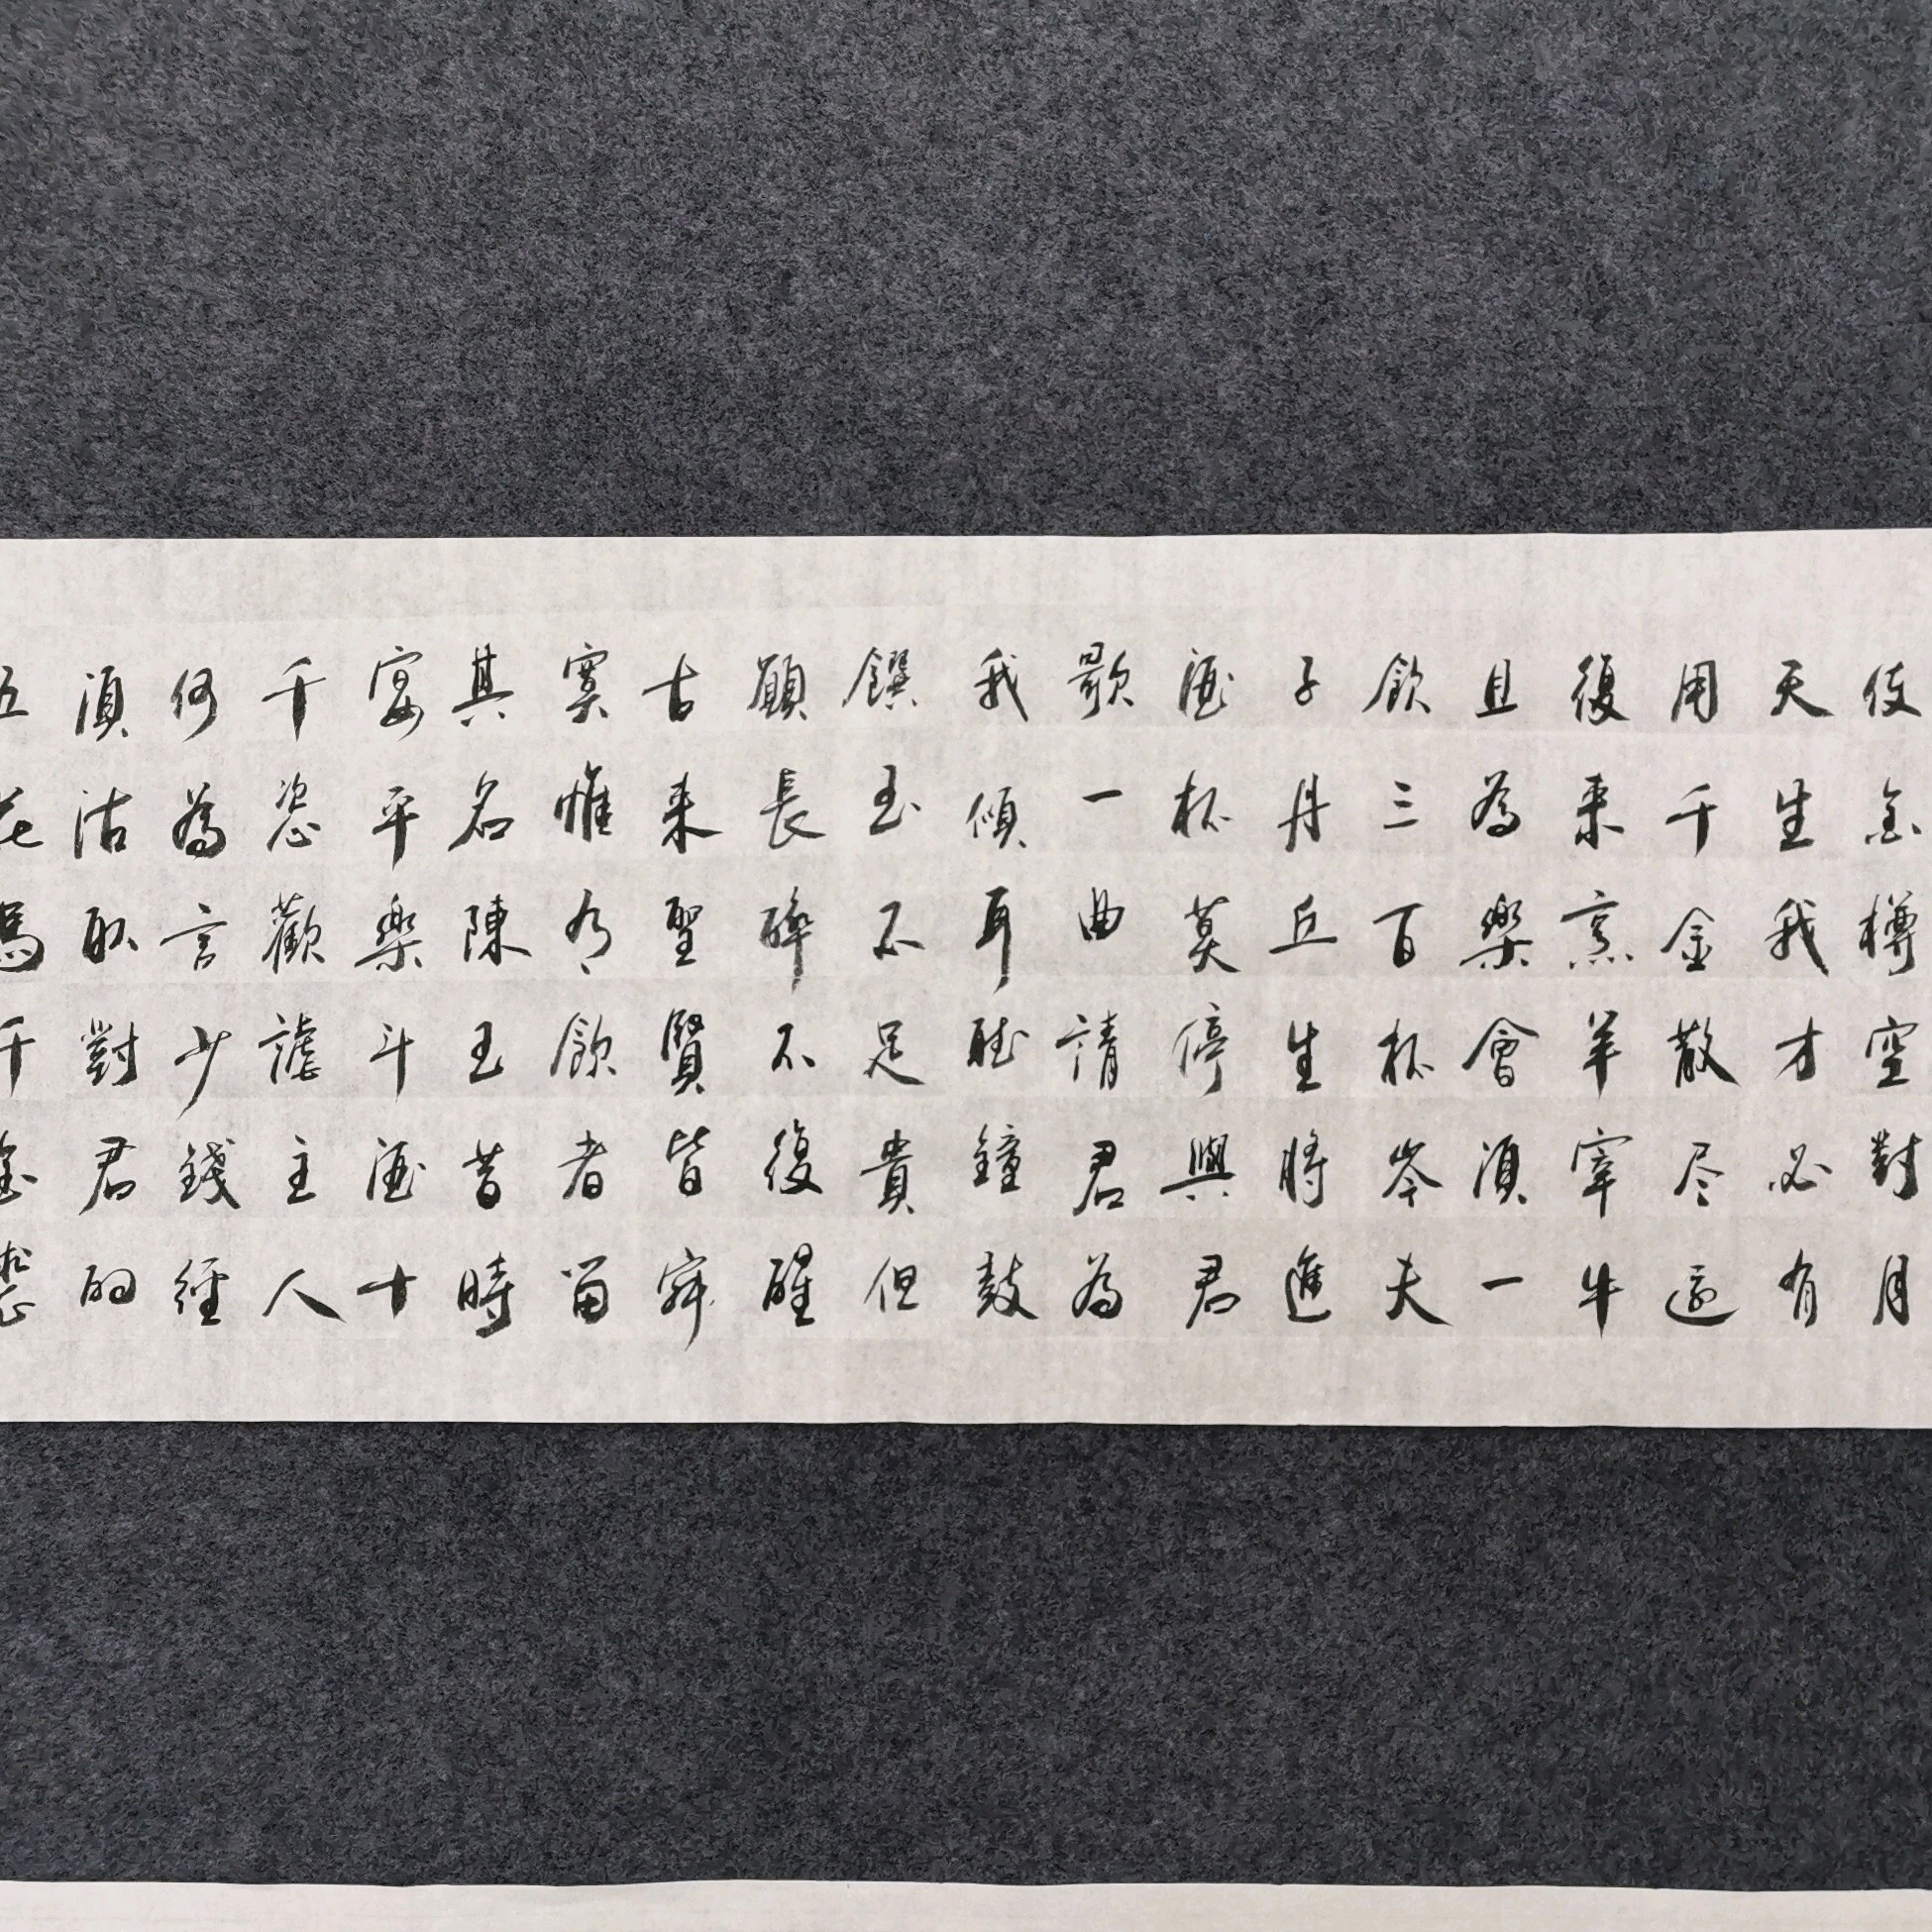 使金樽空對月
天生我才必有
用千金散尽還
復来烹羊宰牛
且為樂會須一
飲三百杯岑夫
子丹丘生將進
酒杯莫停與君
歌一曲請君為
我傾耳聽鐘鼓
饌玉不足貴但
願長醉不復醒
古来聖賢皆寂
寞惟有飲者留
其名陳王昔時
宴平樂斗酒十
千恣歡謔主人
何為言少錢經
須沽取對君酌
五花馬千金裘